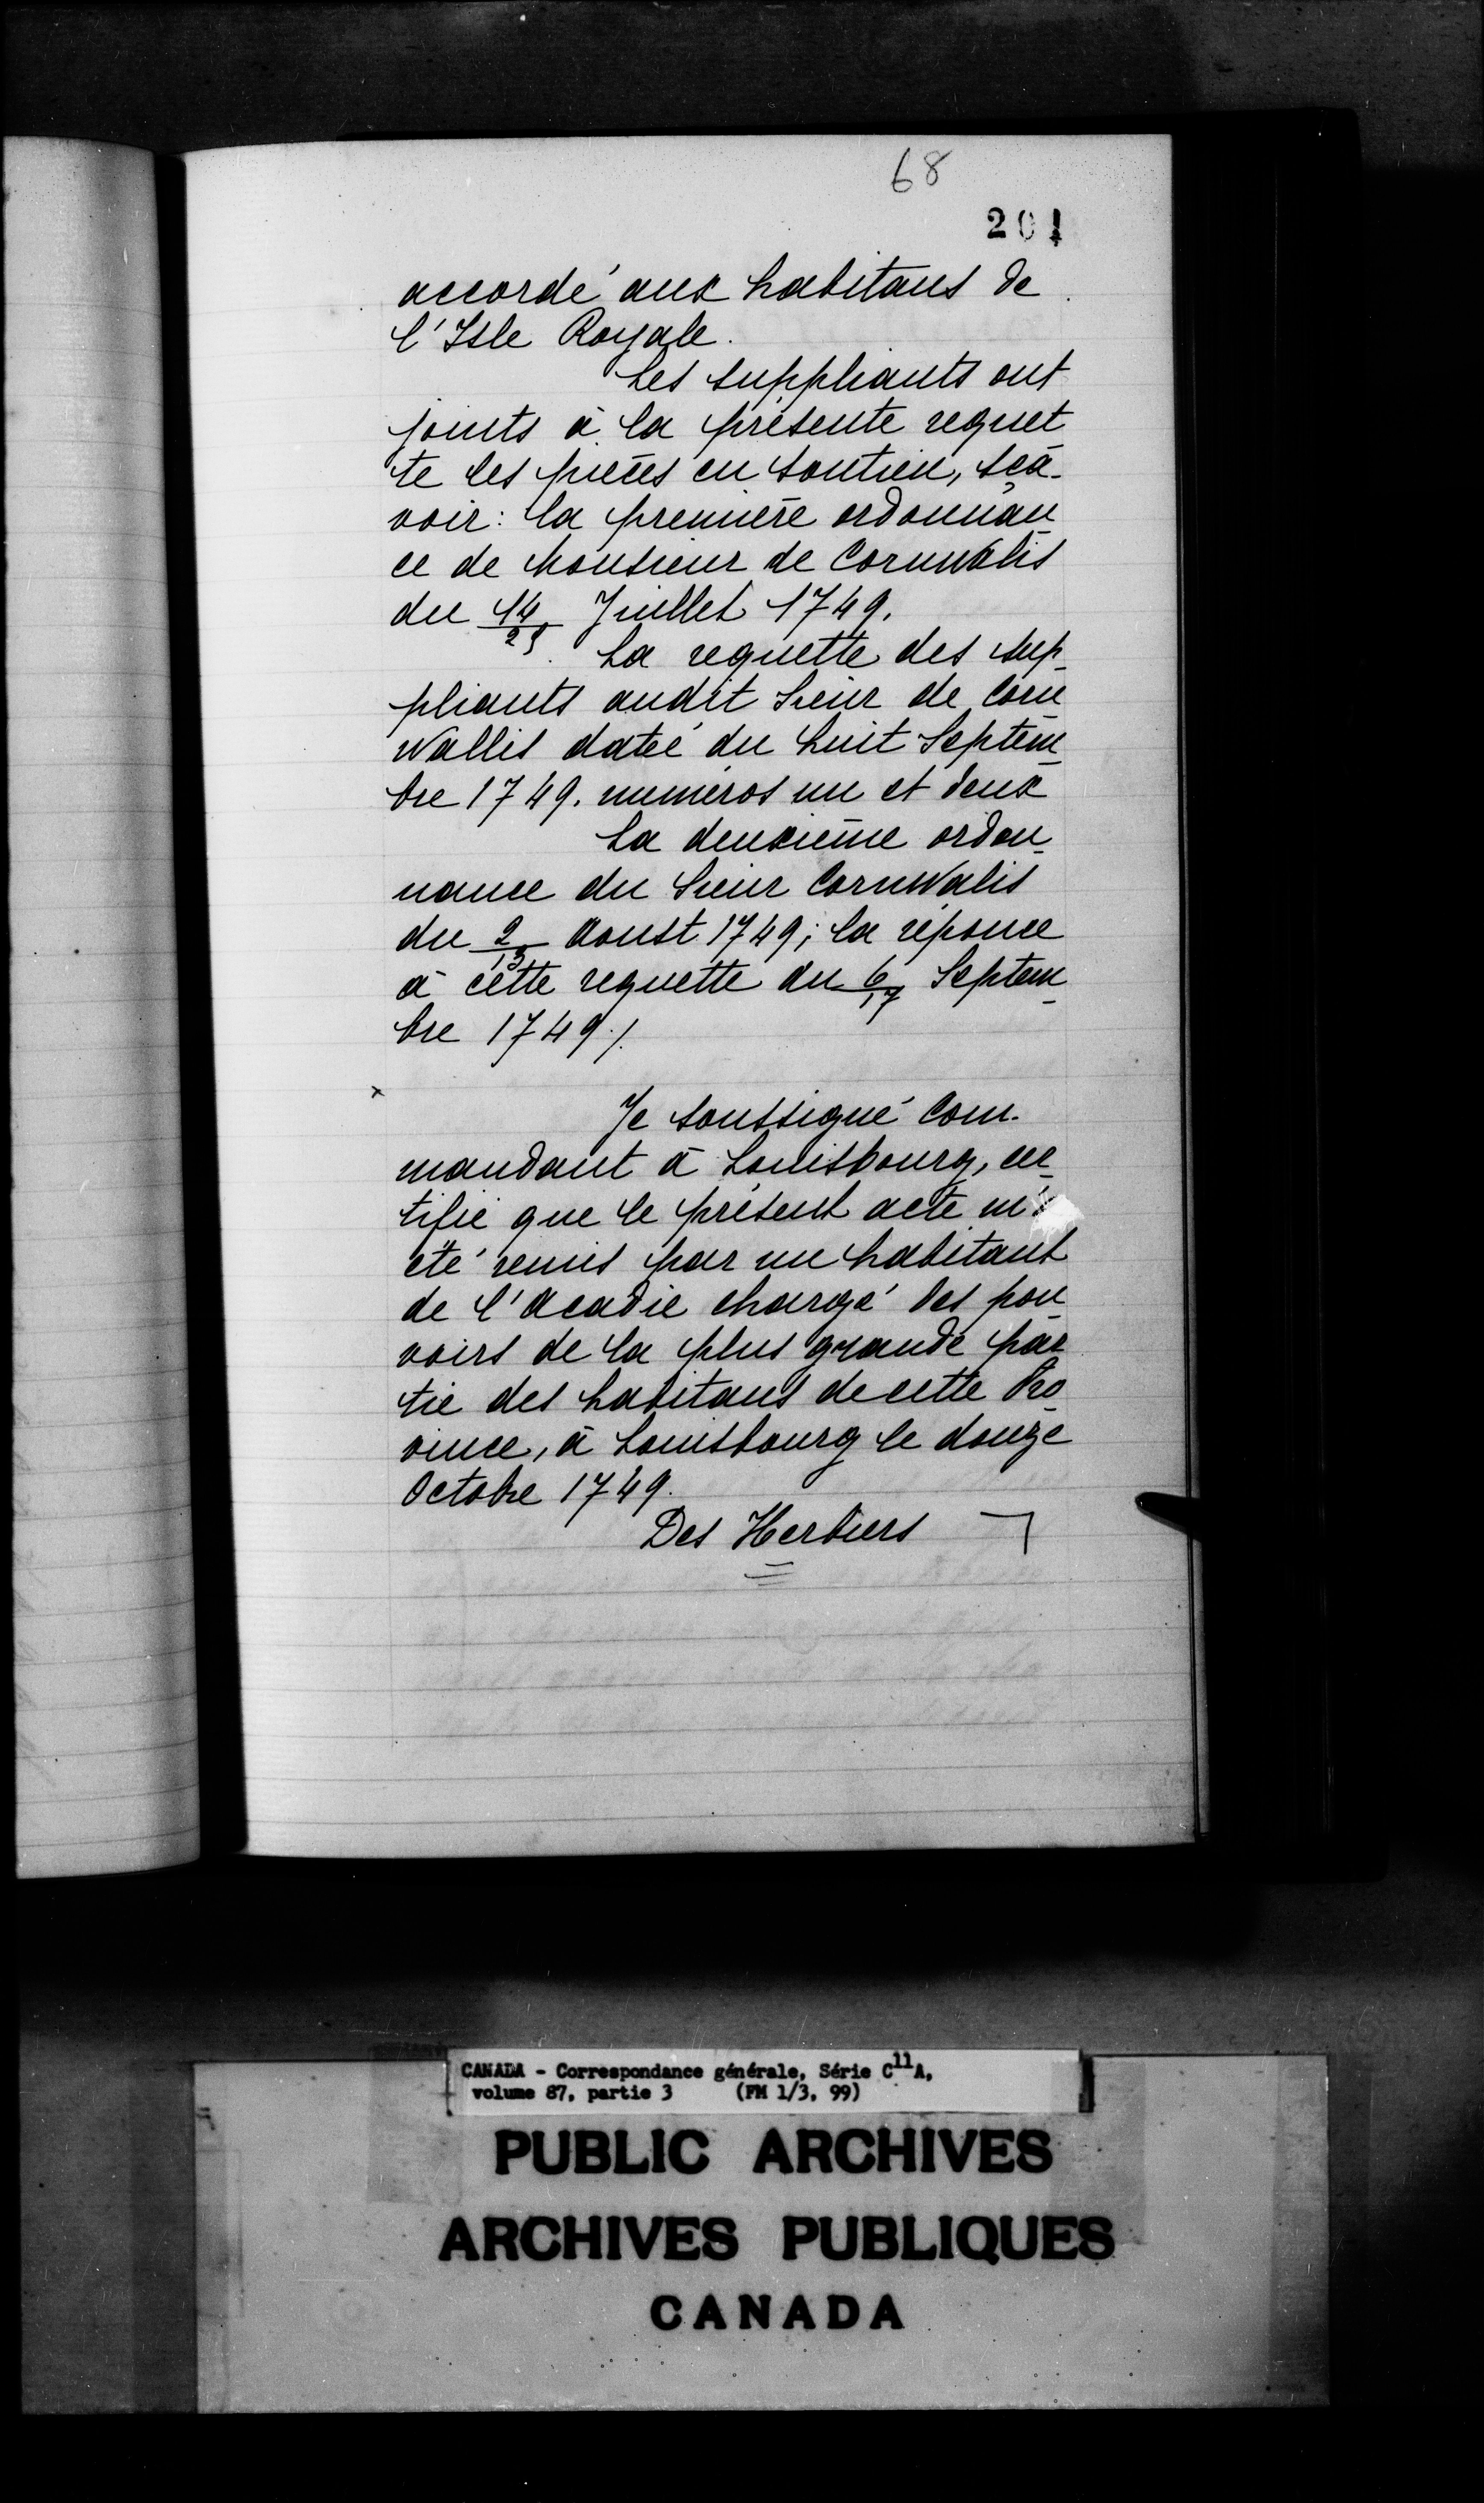 68
201
accordé aux habitans de
l'Isle Royale.
Les suppliants ont
joints à la présente requet
te les pièces en soutien, sça-
voir: la première ordonnan
ce de Monsieur de Cornwalis
du 14/25 Juillet 1749.
La requette des sup-
pliants audit Sieur de Corn
Wallis datée du huit Septem-
bre 1749. numéros un et deux
La deuxième ordon-
nance du Sieur CornWalis
du 2/13 Aoust 1749; la réponce
à cette requette du 6/17 Septem-
bre 1749./.
x
Je soussigné Com-
mandant à Louisbourg, cer-
tifie que le présent acte m'
été remis par un habitant
de l'Acadie chargé des pou-
voirs de la plus grande par-
tie des habitans de cette Pro-
vince, à Louisbourg le douze
Octobre 1749.
Des Herbiers
CANADA - Correspondance générale, Série C11A,
volume 87, partie 3 (FM 1/3, 99)
PUBLIC ARCHIVES
ARCHIVES PUBLIQUES
CANADA